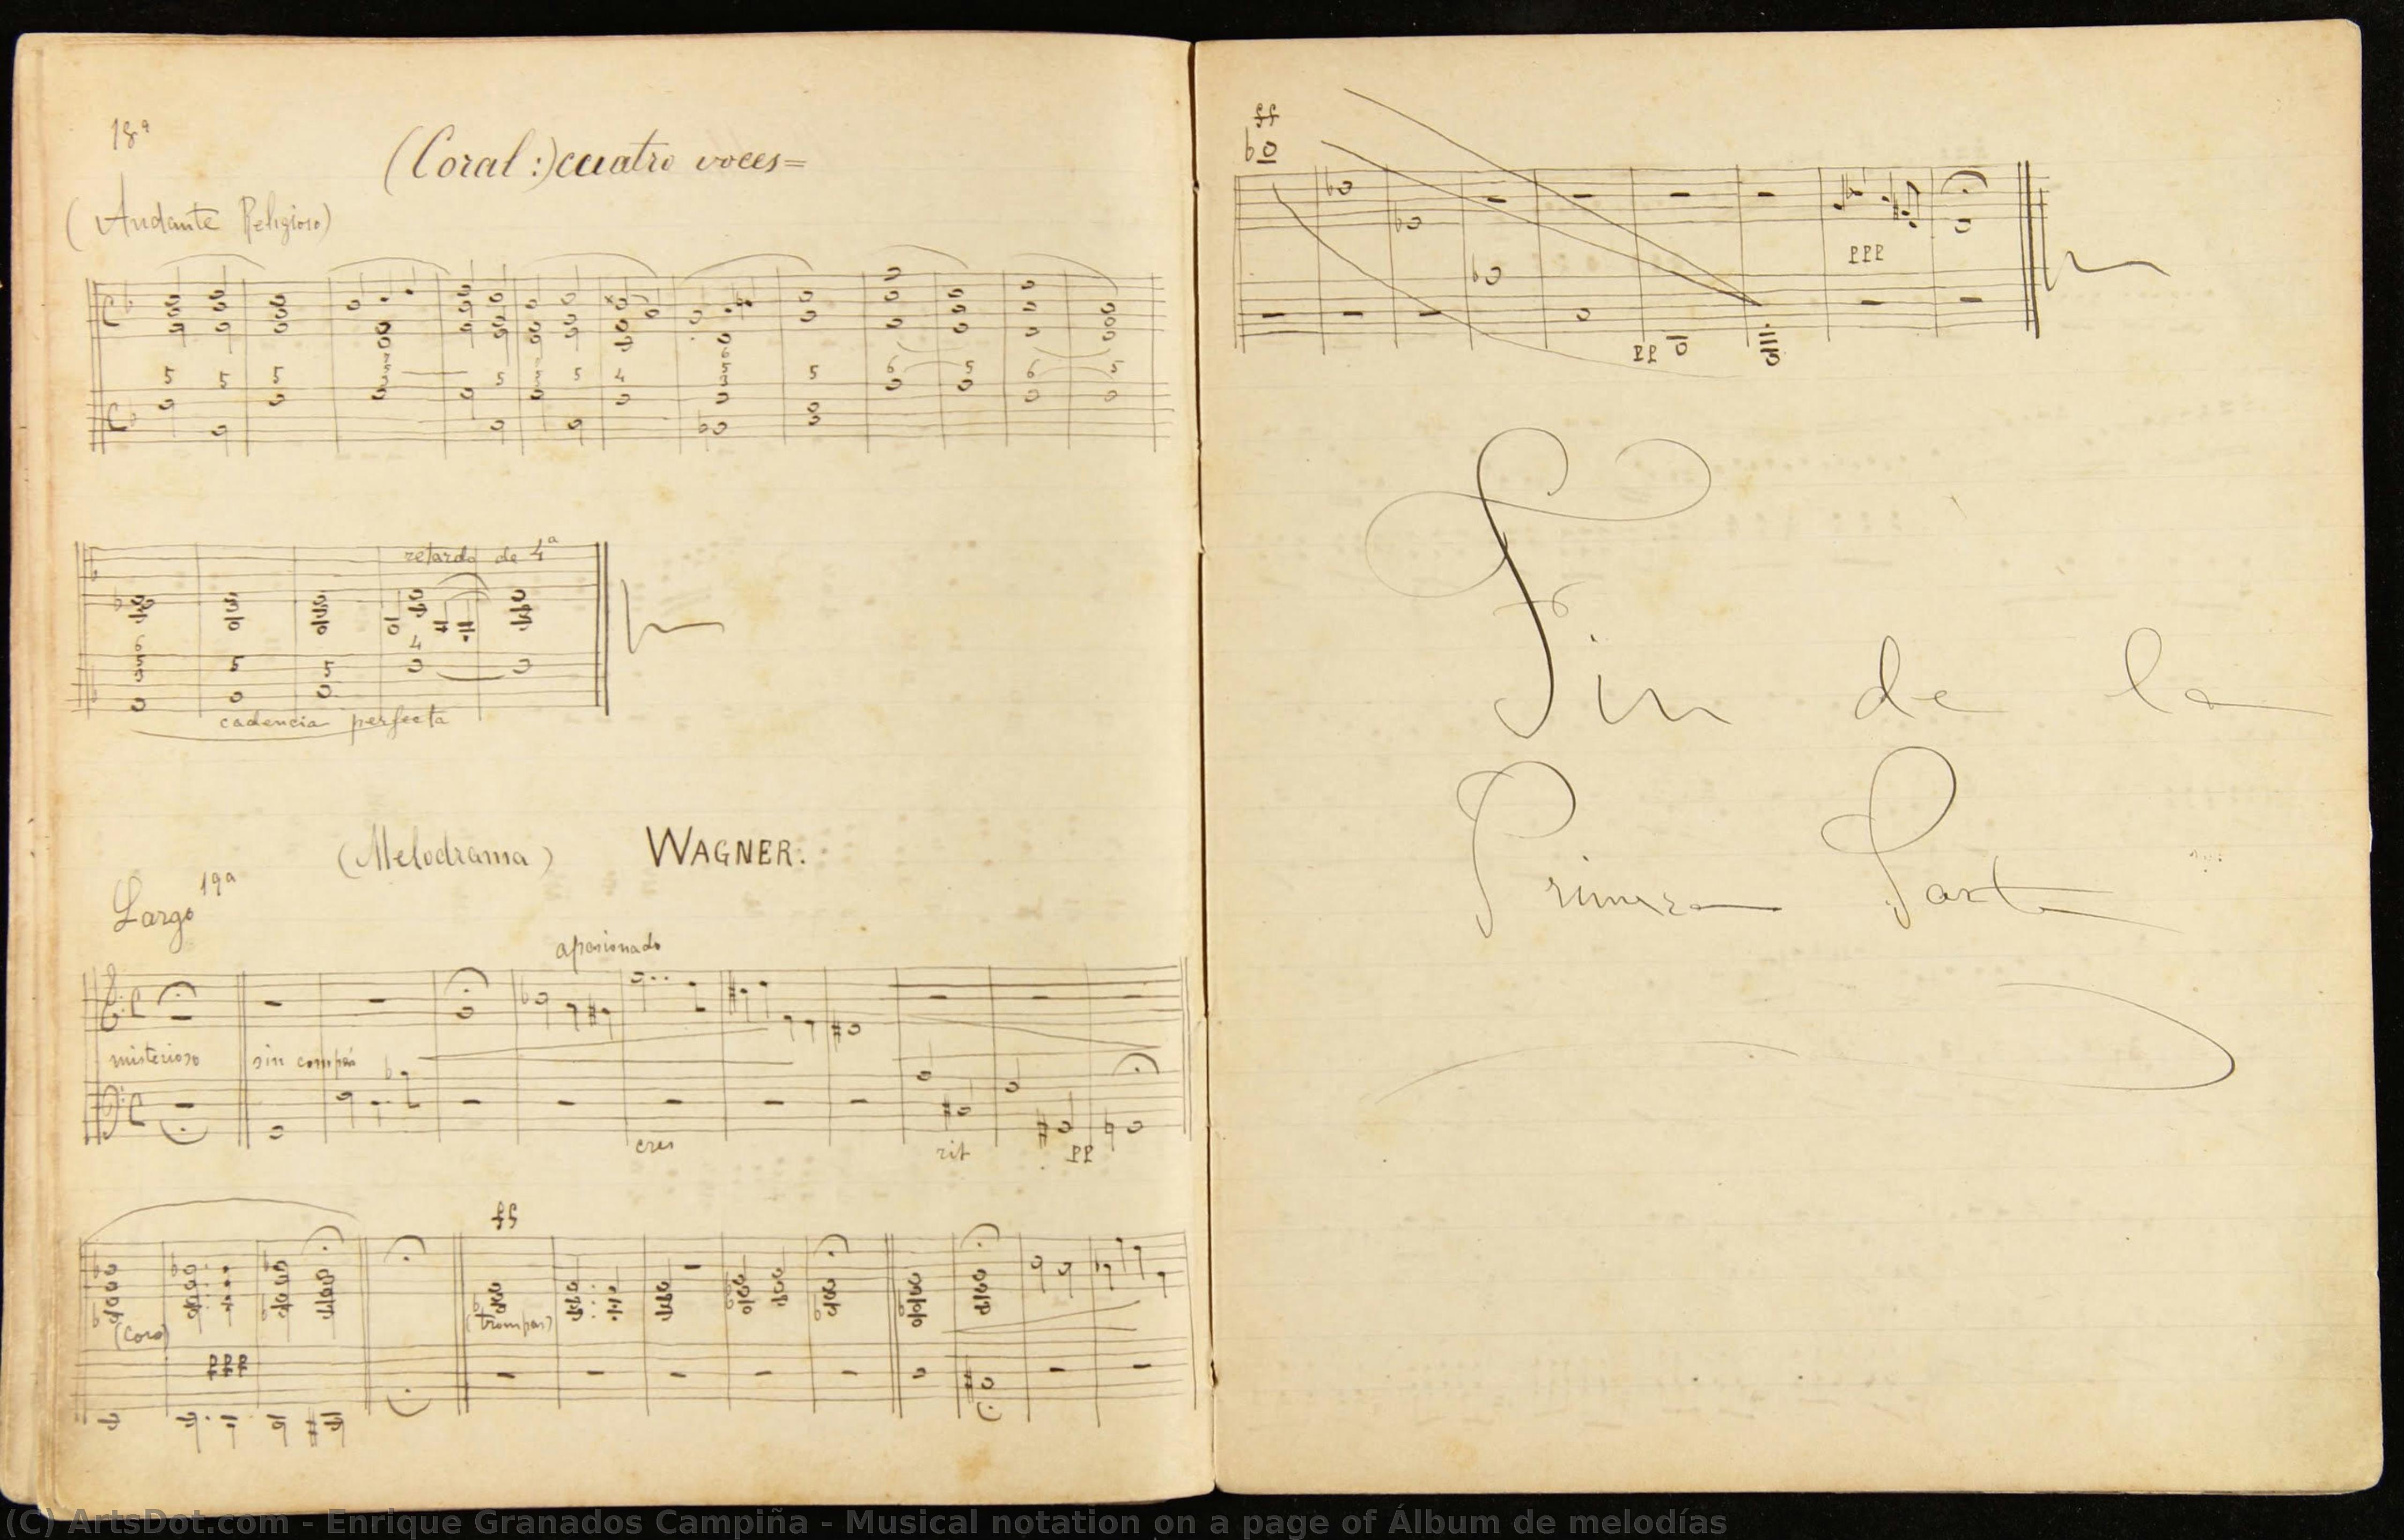 18ª
(Coral:) cuatro voces=
(Andante Religioso)
5 5 5 5 5 4 5 6 5 6 5
retardo de 4ª
6 5 5 5 4
cadencia perfecta
(Melodrama) WAGNER.
Largo 19ª
apasionado
misterioso sin compás
cres rit pp
ff
(Coro) (trompas)
ppp
ff
ppp
pp
Fin de la
Primera Parte
(C) ArtsDot.com - Enrique Granados Campiña - Musical notation on a page of Álbum de melodías